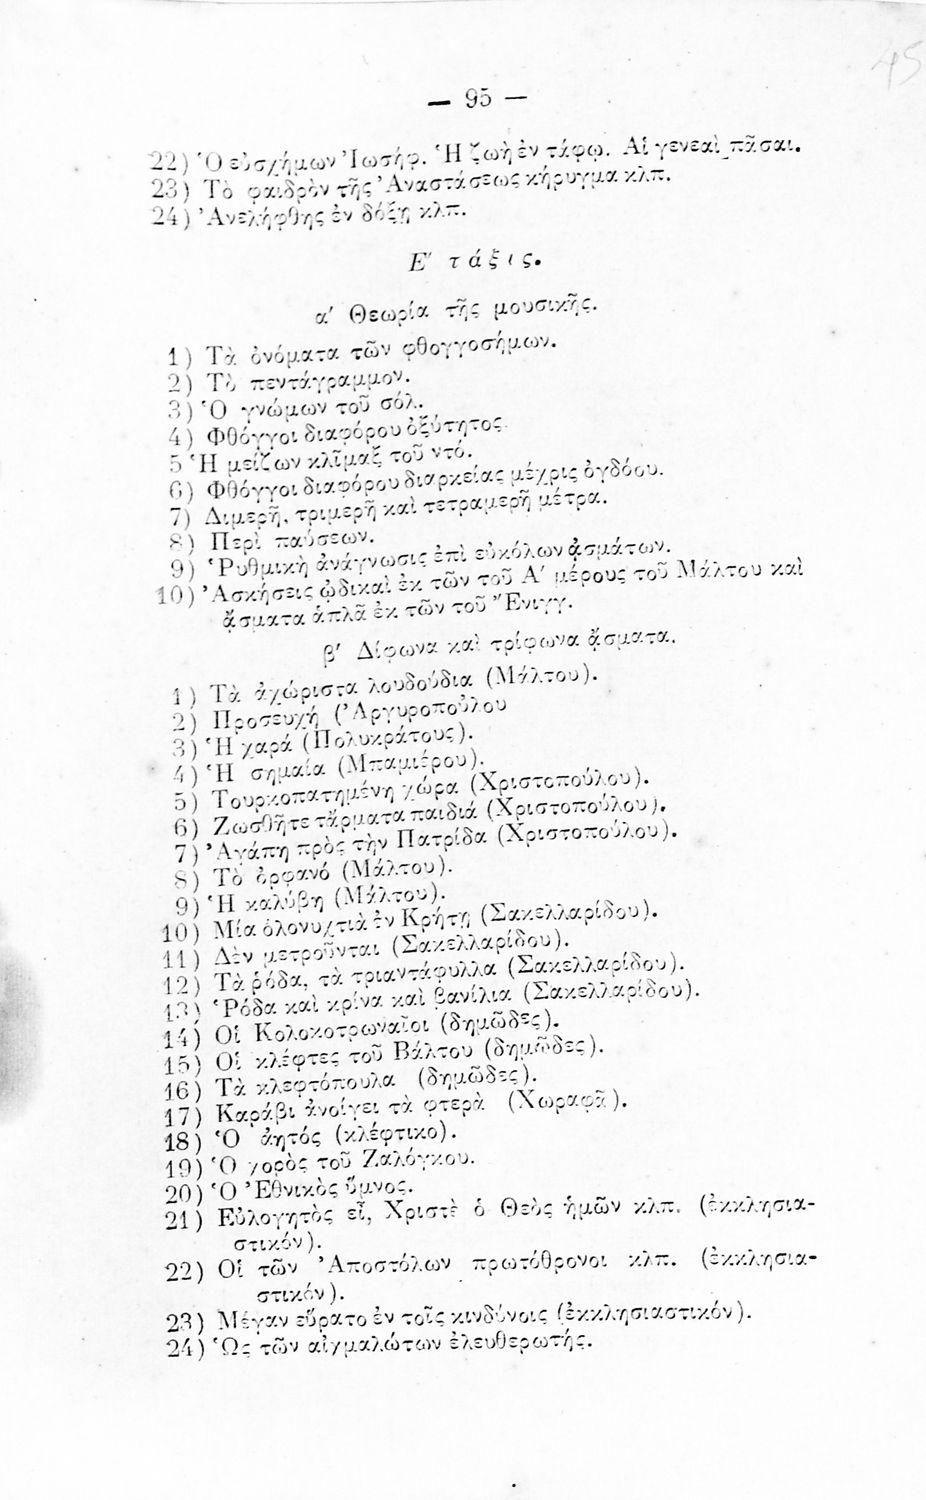 — 95 —
22) Ὁ εὐσχήμων Ἰωσήφ. Ἡ ζωὴ ἐν τάφῳ. Αἱ γενεαὶ πᾶσαι.
23) Τὸ φαιδρὸν τῆς Ἀναστάσεως κήρυγμα κλπ.
24) Ἀνελήφθης ἐν δόξῃ κλπ.
Ε′ τάξις.
α′ Θεωρία τῆς μουσικῆς.
1) Τὰ ὀνόματα τῶν φθογγοσήμων.
2) Τὸ πεντάγραμμον.
3) Ὁ γνώμων τοῦ σόλ.
4) Φθόγγοι διαφόρου ὀξύτητος.
5 Ἡ μείζων κλῖμαξ τοῦ ντό.
6) Φθόγγοι διαφόρου διαρκείας μέχρις ὀγδόου.
7) Διμερῆ, τριμερῆ καὶ τετραμερῆ μέτρα.
8) Περὶ παύσεων.
9) Ῥυθμικὴ ἀνάγνωσις ἐπὶ εὐκόλων ᾀσμάτων.
10) Ἀσκήσεις ᾠδικαὶ ἐκ τῶν τοῦ Α′ μέρους τοῦ Μάλτου καὶ
ᾄσματα ἁπλᾶ ἐκ τῶν τοῦ Ἔνιγγ.
β′ Δίφωνα καὶ τρίφωνα ᾄσματα.
1) Τὰ ἀχώριστα λουδούδια (Μάλτου).
2) Προσευχή (Ἀργυροπούλου
3) Ἡ χαρά (Πολυκράτους).
4) Ἡ σημαία (Μπαμιέρου).
5) Τουρκοπατημένη χώρα (Χριστοπούλου).
6) Ζωσθῆτε τἄρματα παιδιά (Χριστοπούλου).
7) Ἀγάπη πρὸς τὴν Πατρίδα (Χριστοπούλου).
8) Τὸ ὀρφανό (Μάλτου).
9) Ἡ καλύβη (Μάλτου).
10) Μία ὁλονυχτιὰ ἐν Κρήτῃ (Σακελλαρίδου).
11) Δὲν μετροῦνται (Σακελλαρίδου).
12) Τὰ ῥόδα, τὰ τριαντάφυλλα (Σακελλαρίδου).
13) Ῥόδα καὶ κρίνα καὶ βανίλια (Σακελλαρίδου).
14) Οἱ Κολοκοτρωναῖοι (δημῶδες).
15) Οἱ κλέφτες τοῦ Βάλτου (δημῶδες).
16) Τὰ κλεφτόπουλα (δημῶδες).
17) Καράβι ἀνοίγει τὰ φτερὰ (Χωραφᾶ).
18) Ὁ ἀητός (κλέφτικο).
19) Ὁ χορὸς τοῦ Ζαλόγκου.
20) Ὁ Ἐθνικὸς ὕμνος.
21) Εὐλογητὸς εἶ, Χριστὲ ὁ Θεὸς ἡμῶν κλπ. (ἐκκλησια-
στικόν).
22) Οἱ τῶν Ἀποστόλων πρωτόθρονοι κλπ. (ἐκκλησια-
στικόν).
23) Μέγαν εὕρατο ἐν τοῖς κινδύνοις (ἐκκλησιαστικόν).
24) Ὡς τῶν αἰγμαλώτων ἐλευθερωτής.